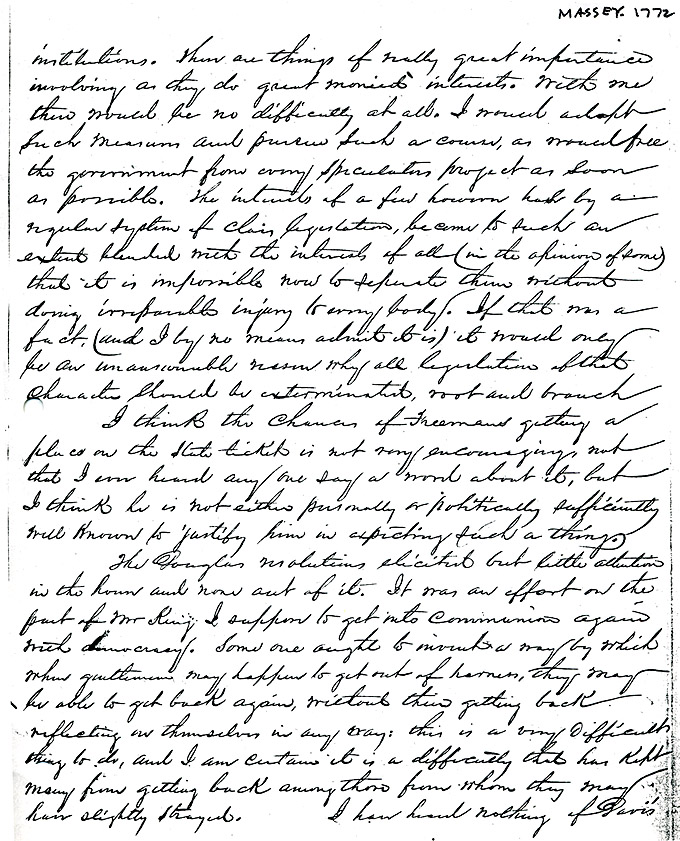 MASSEY. 1772
institutions. There are things of really great importance
involving as they do great monied interests. With me
there would be no difficulty at all. I would adopt
such measures and pursue such a course, as would free
the government from every speculators project as soon
as possible. The interests of a few however had by a
regular system of class legislation, became to such an
extent blended with the interests of all (in the opinion of some)
that it is impossible now to seperate them without
doing irreparable injury to every body. If that was a
fact, (and I by no means admit it is) it would only
be an unanswerable reason why all legislation of that
character should be exterminated, root and branch
I think the chances of Freemans getting a
place on the State ticket is not very encouraging, not
that I ever heard any one say a word about it, but
I think he is not either personally or politically sufficiently
well known to justify him in expecting such a thing
The Douglas resolutions elicited but little attention
in the house and none out of it. It was an effort on the
part of Mr King I suppose to get into communion again
with democracy. Some one ought to invent a way by which
when gentlemen may happen to get out of harness, they may
be able to get back again, without their getting back
reflecting on themselves in any way: this is a very difficult
thing to do, and I am certain it is a difficulty that has kept
many from getting back among those from whom they may
have slightly strayed. I have heard nothing of Davis